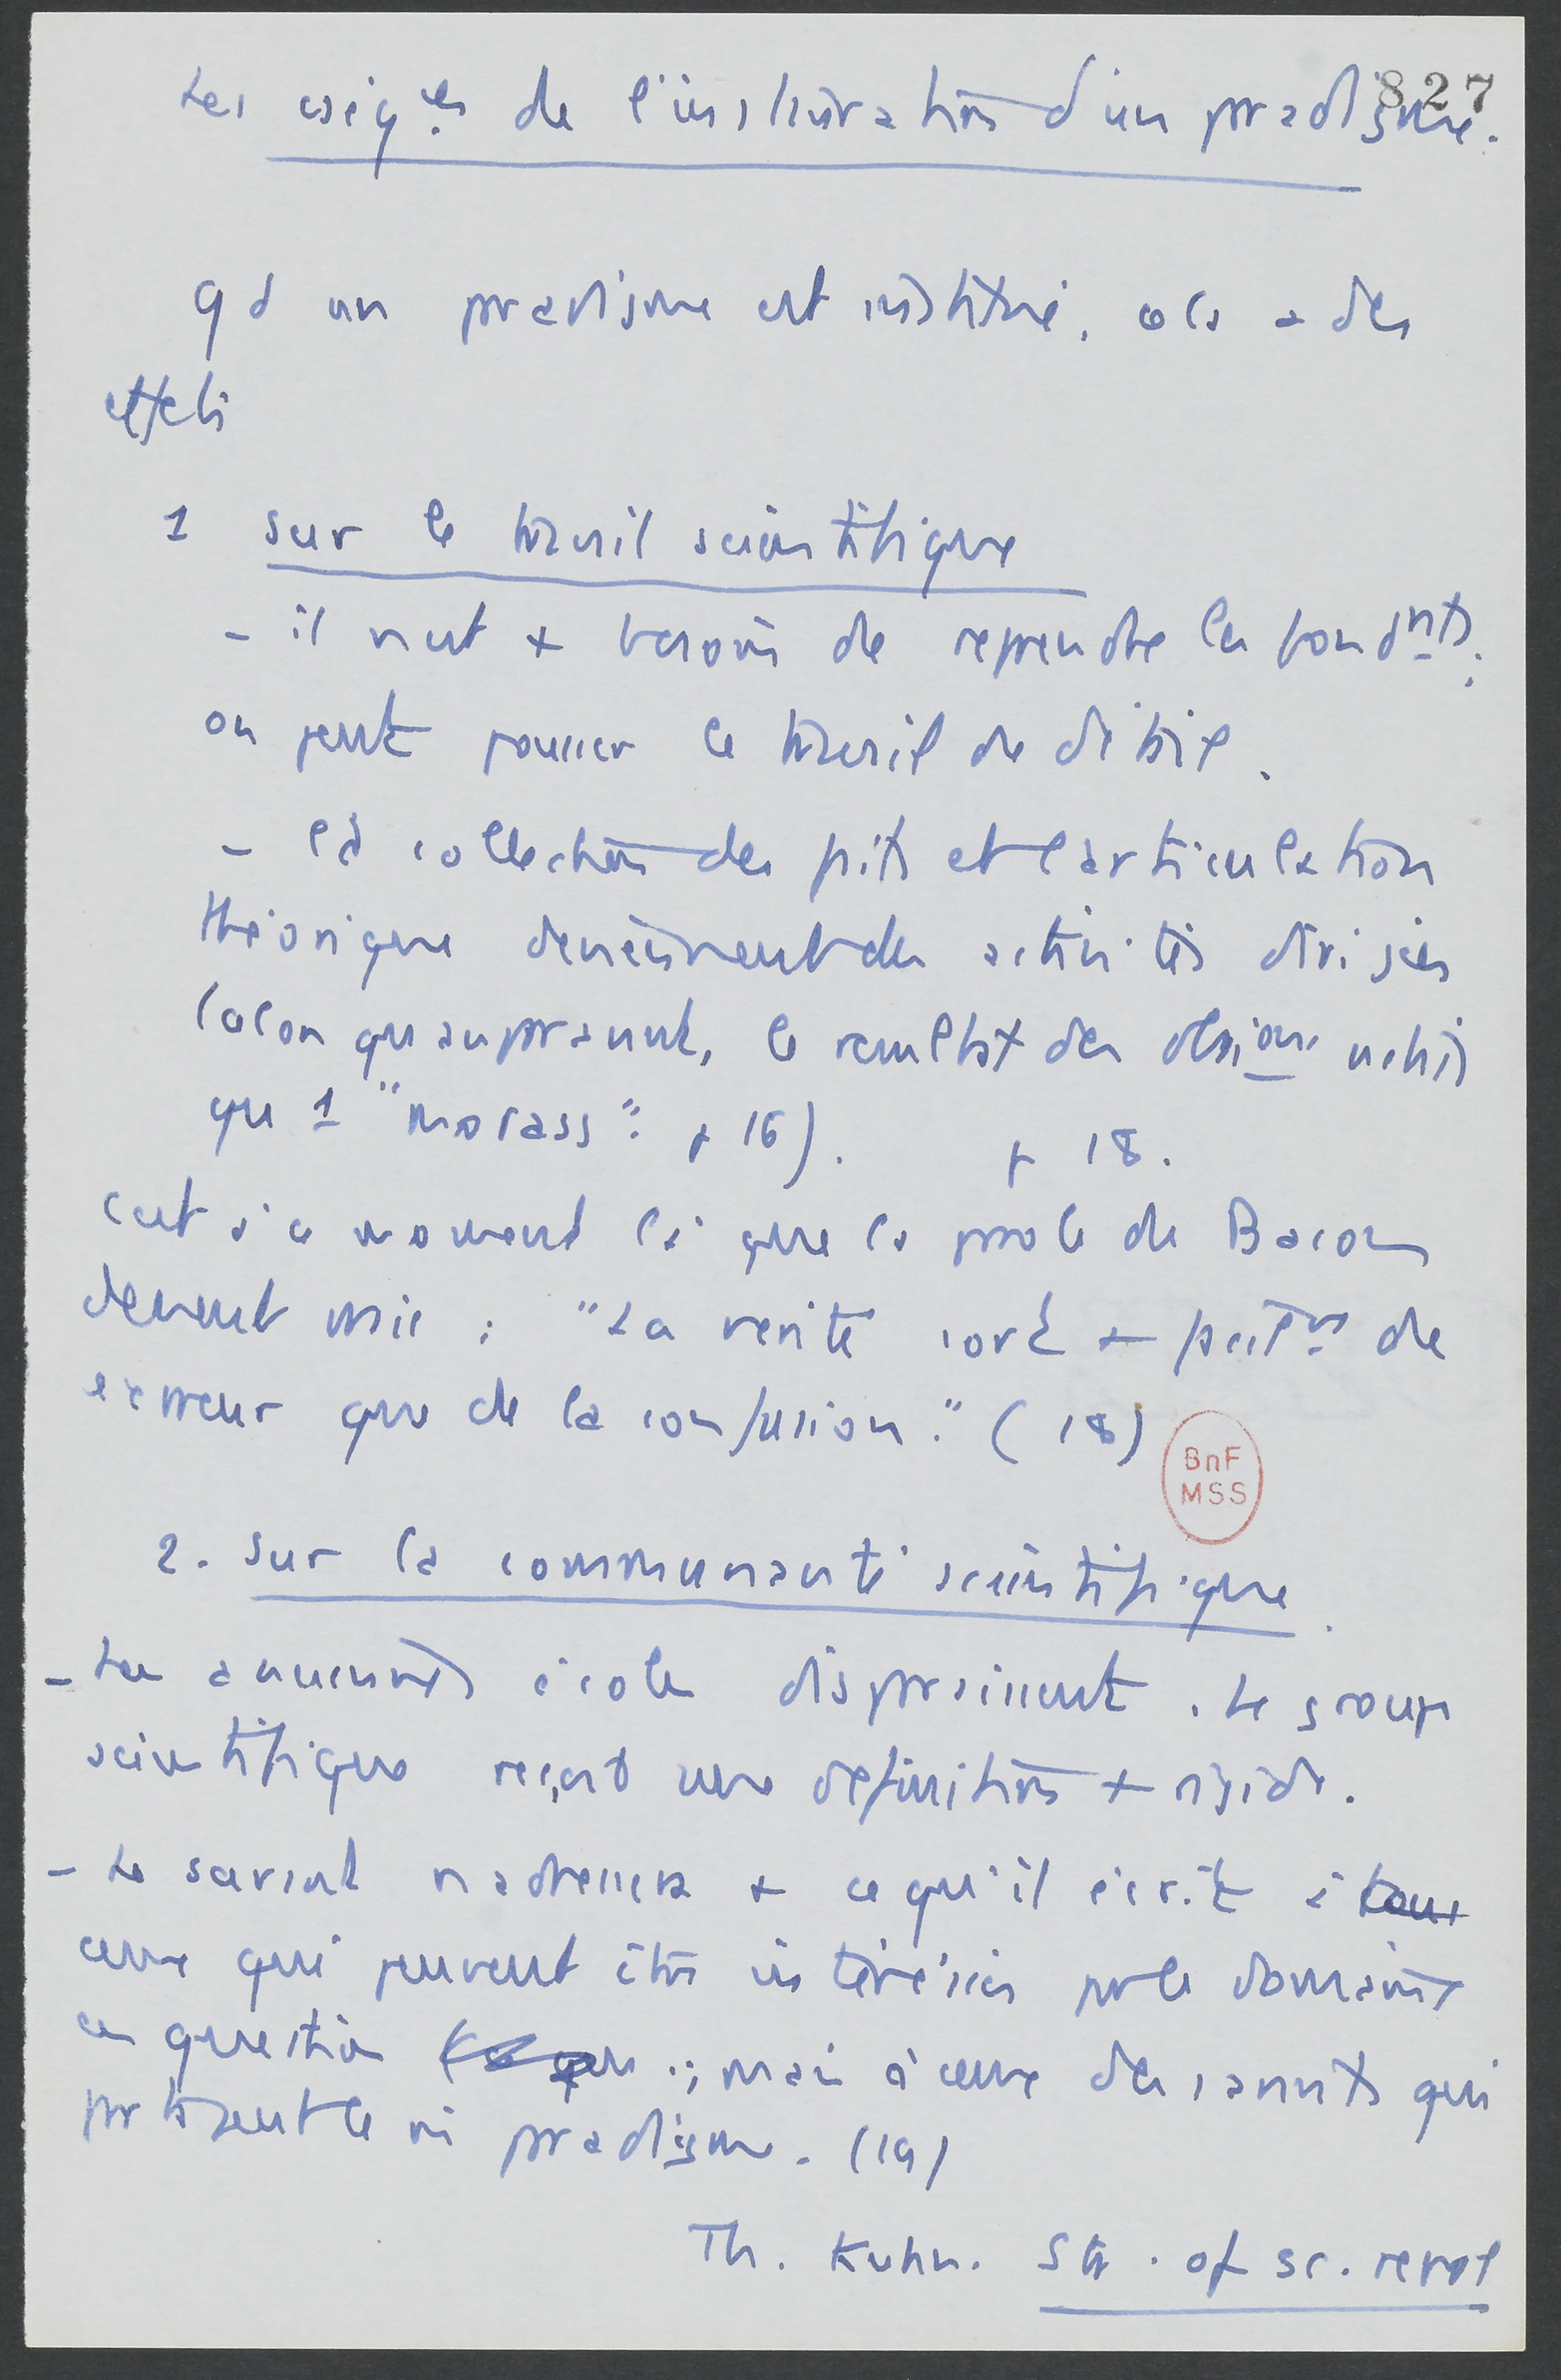 827
Les csq.ces de l'instauration d'un pradigme.
Qd un pradigme est institué, cela a des
effets
1 sur le travail scientifique
- il n'est + besoin de reprendre les fondnts ;
on peut pousser le travail de détail.
- la collection des faits et l'articulation
théorique deviennent des activités dirigées
(alors qu'auparavant, le résultat des obsions n'était
qu'1 "morass". p 16). p 18.
C'est à ce moment là que la parole de Bacon
devient vraie : "La vérité sort + facilemt de
l'erreur que de la confusion." (18)
BnF
MSS
2. sur la communauté scientifique.
- Les anciennes écoles disparaissent. Le groupe
scientifique reçoit une définition + rigide.
- Le savant n'adressera + ce qu'il écrit à tous
ceux qui peuvent être intéressés par le domaine
en question ; mais à ceux des savants qui
partagent le mê pradigme. (19)
Th. Kuhn. Str. of sc. revol